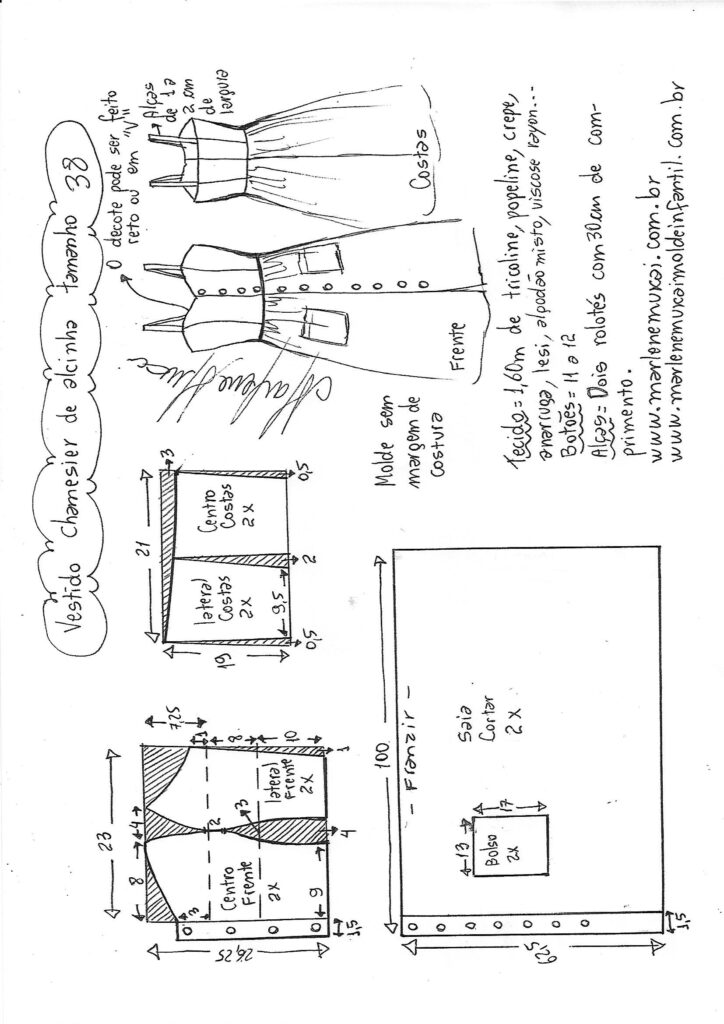 Vestido Chamesier de alcinha tamanho 38
O decote pode ser feito
reto ou em "V"
Alças
de 1 a
2 cm
de
largura
Costas
Frente
21
3
19
lateral
Costas
2x
Centro
Costas
2x
9,5
0,5
2
0,5
Molde sem
margem de
costura
23
7,25
8
4
1
8
10
3
2
3
Centro
Frente
2x
lateral
Frente
2x
9
4
1
26,25
1,5
100
- Franzir -
Saia
Cortar
2x
13
17
Bolso
2x
62,5
1,5
Tecido = 1,60m de tricoline, popeline, crepe,
anarruga, lesi, algodão misto, viscose rayon...
Botões = 11 a 12
Alças = Dois rolotés com 30cm de com-
primento.
www.marlenemukai.com.br
www.marlenemukaimoldeinfantil.com.br